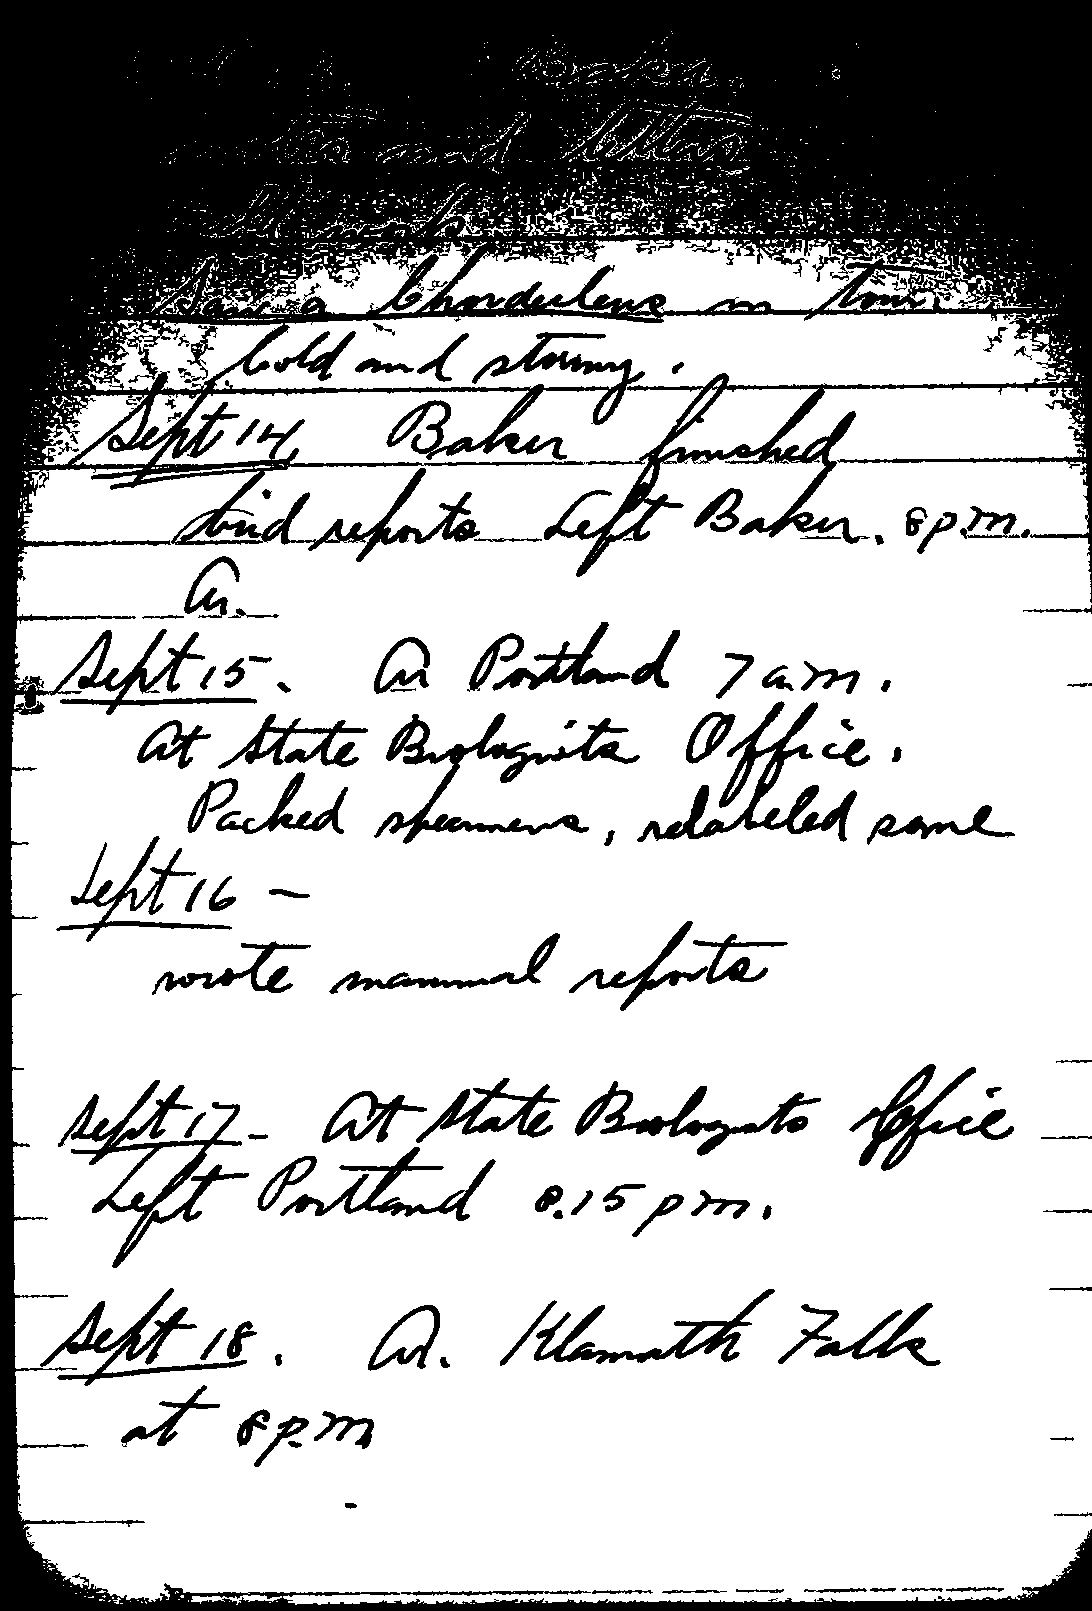 Baker
and letters
Saw a Chordeileus in town.
Cold and stormy.
Sept 14, Baker finished
bird reports Left Baker. 8 p.m.
Ar.
Sept 15. Ar Portland 7 a.m.
At State Biologists Office.
Packed specimens, relabeled some
Sept 16 —
wrote mammal reports
Sept 17 - At State Biologists Office
Left Portland 8.15 p m.
Sept 18. Ar. Klamath Falls
at 8 p.m